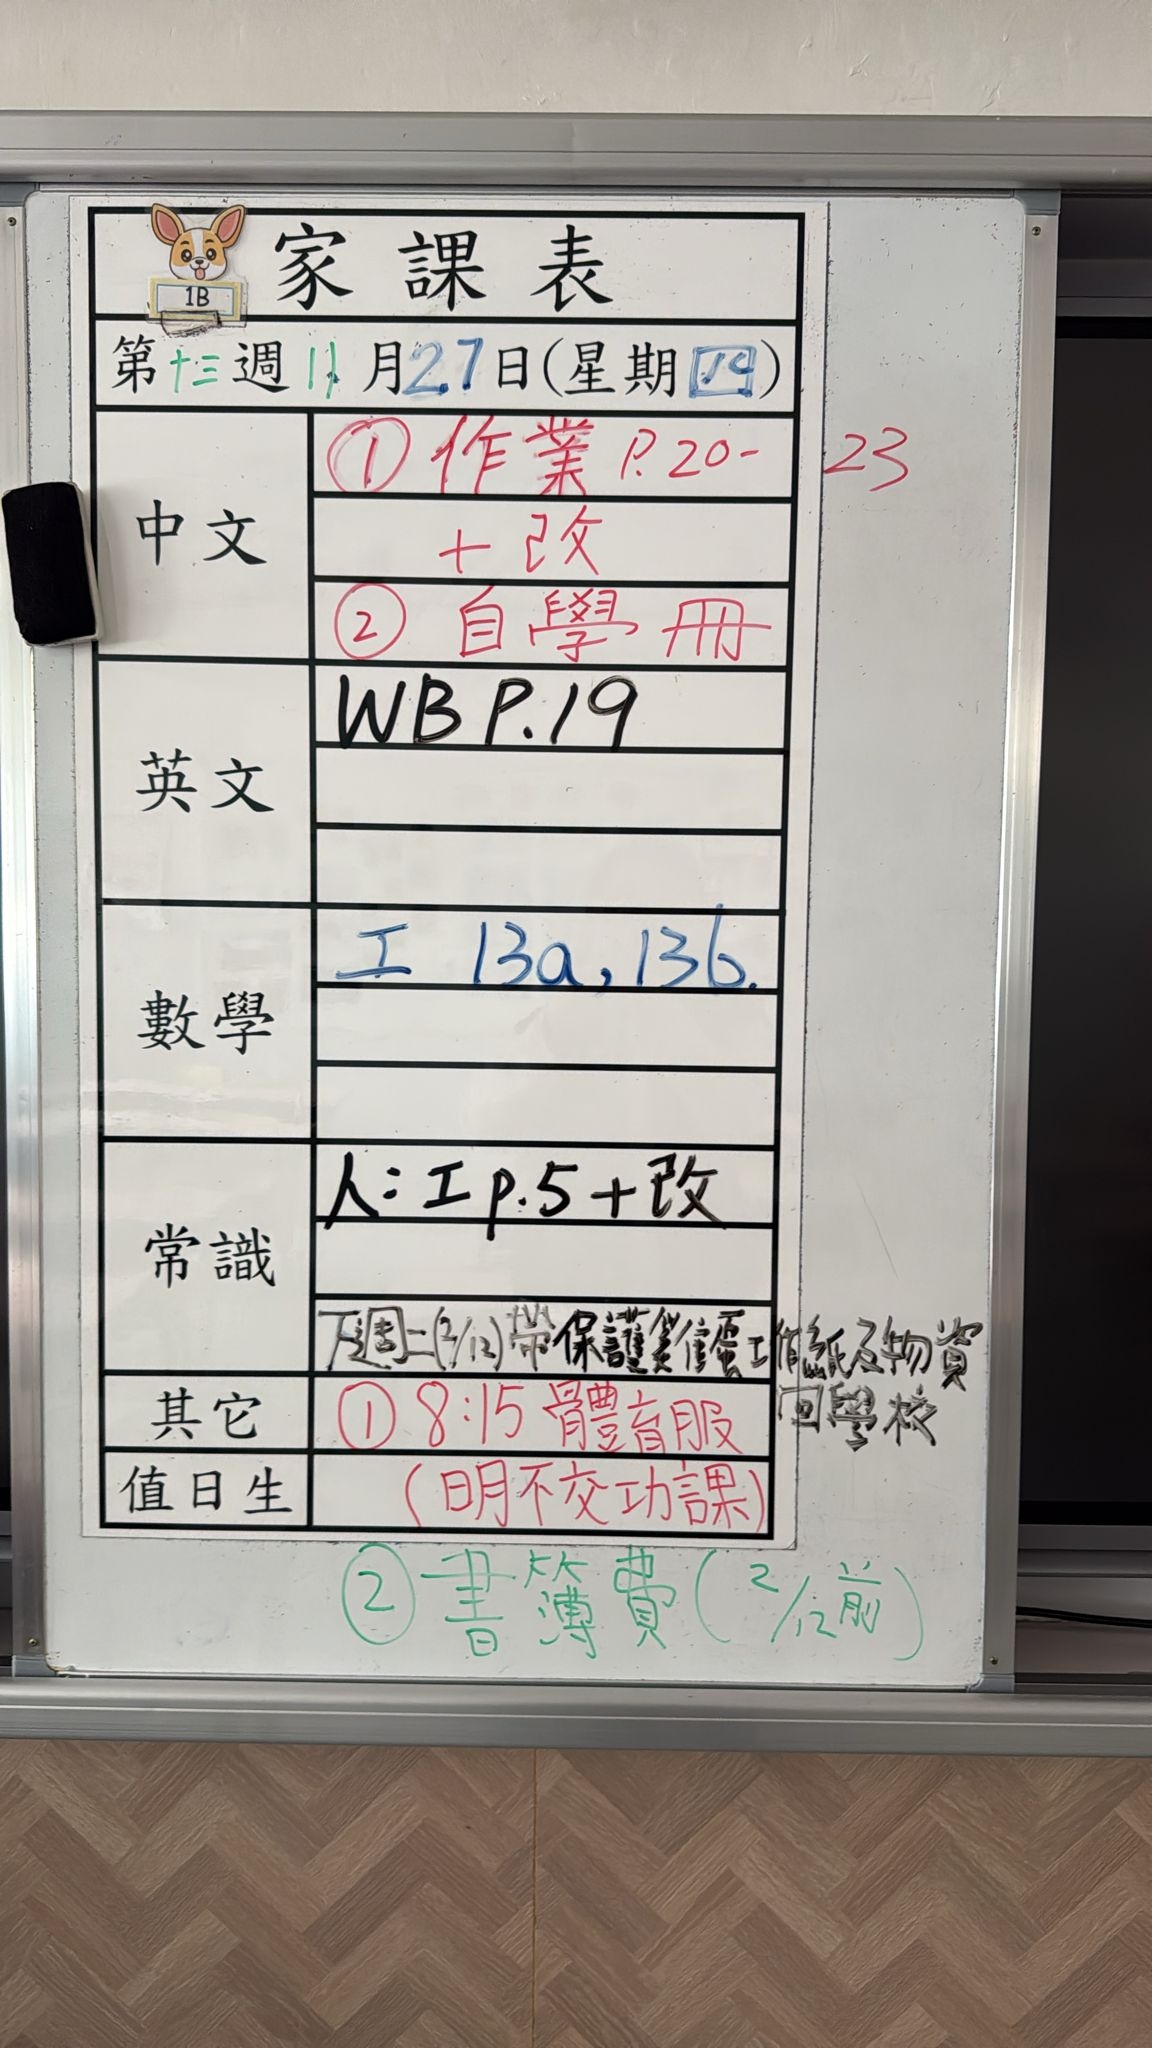 家課表
1B
第十三週 11月27日(星期四)
中文
① 作業 P.20-23
+ 改
② 自學冊
英文
WB P.19
數學
工 13a, 13b.
常識
人: 工 p.5 + 改
下週二(2/12)帶保護雞蛋工作紙及物資
回學校
其它
① 8:15 體育服
值日生
(明不交功課)
② 書簿費(2/12前)